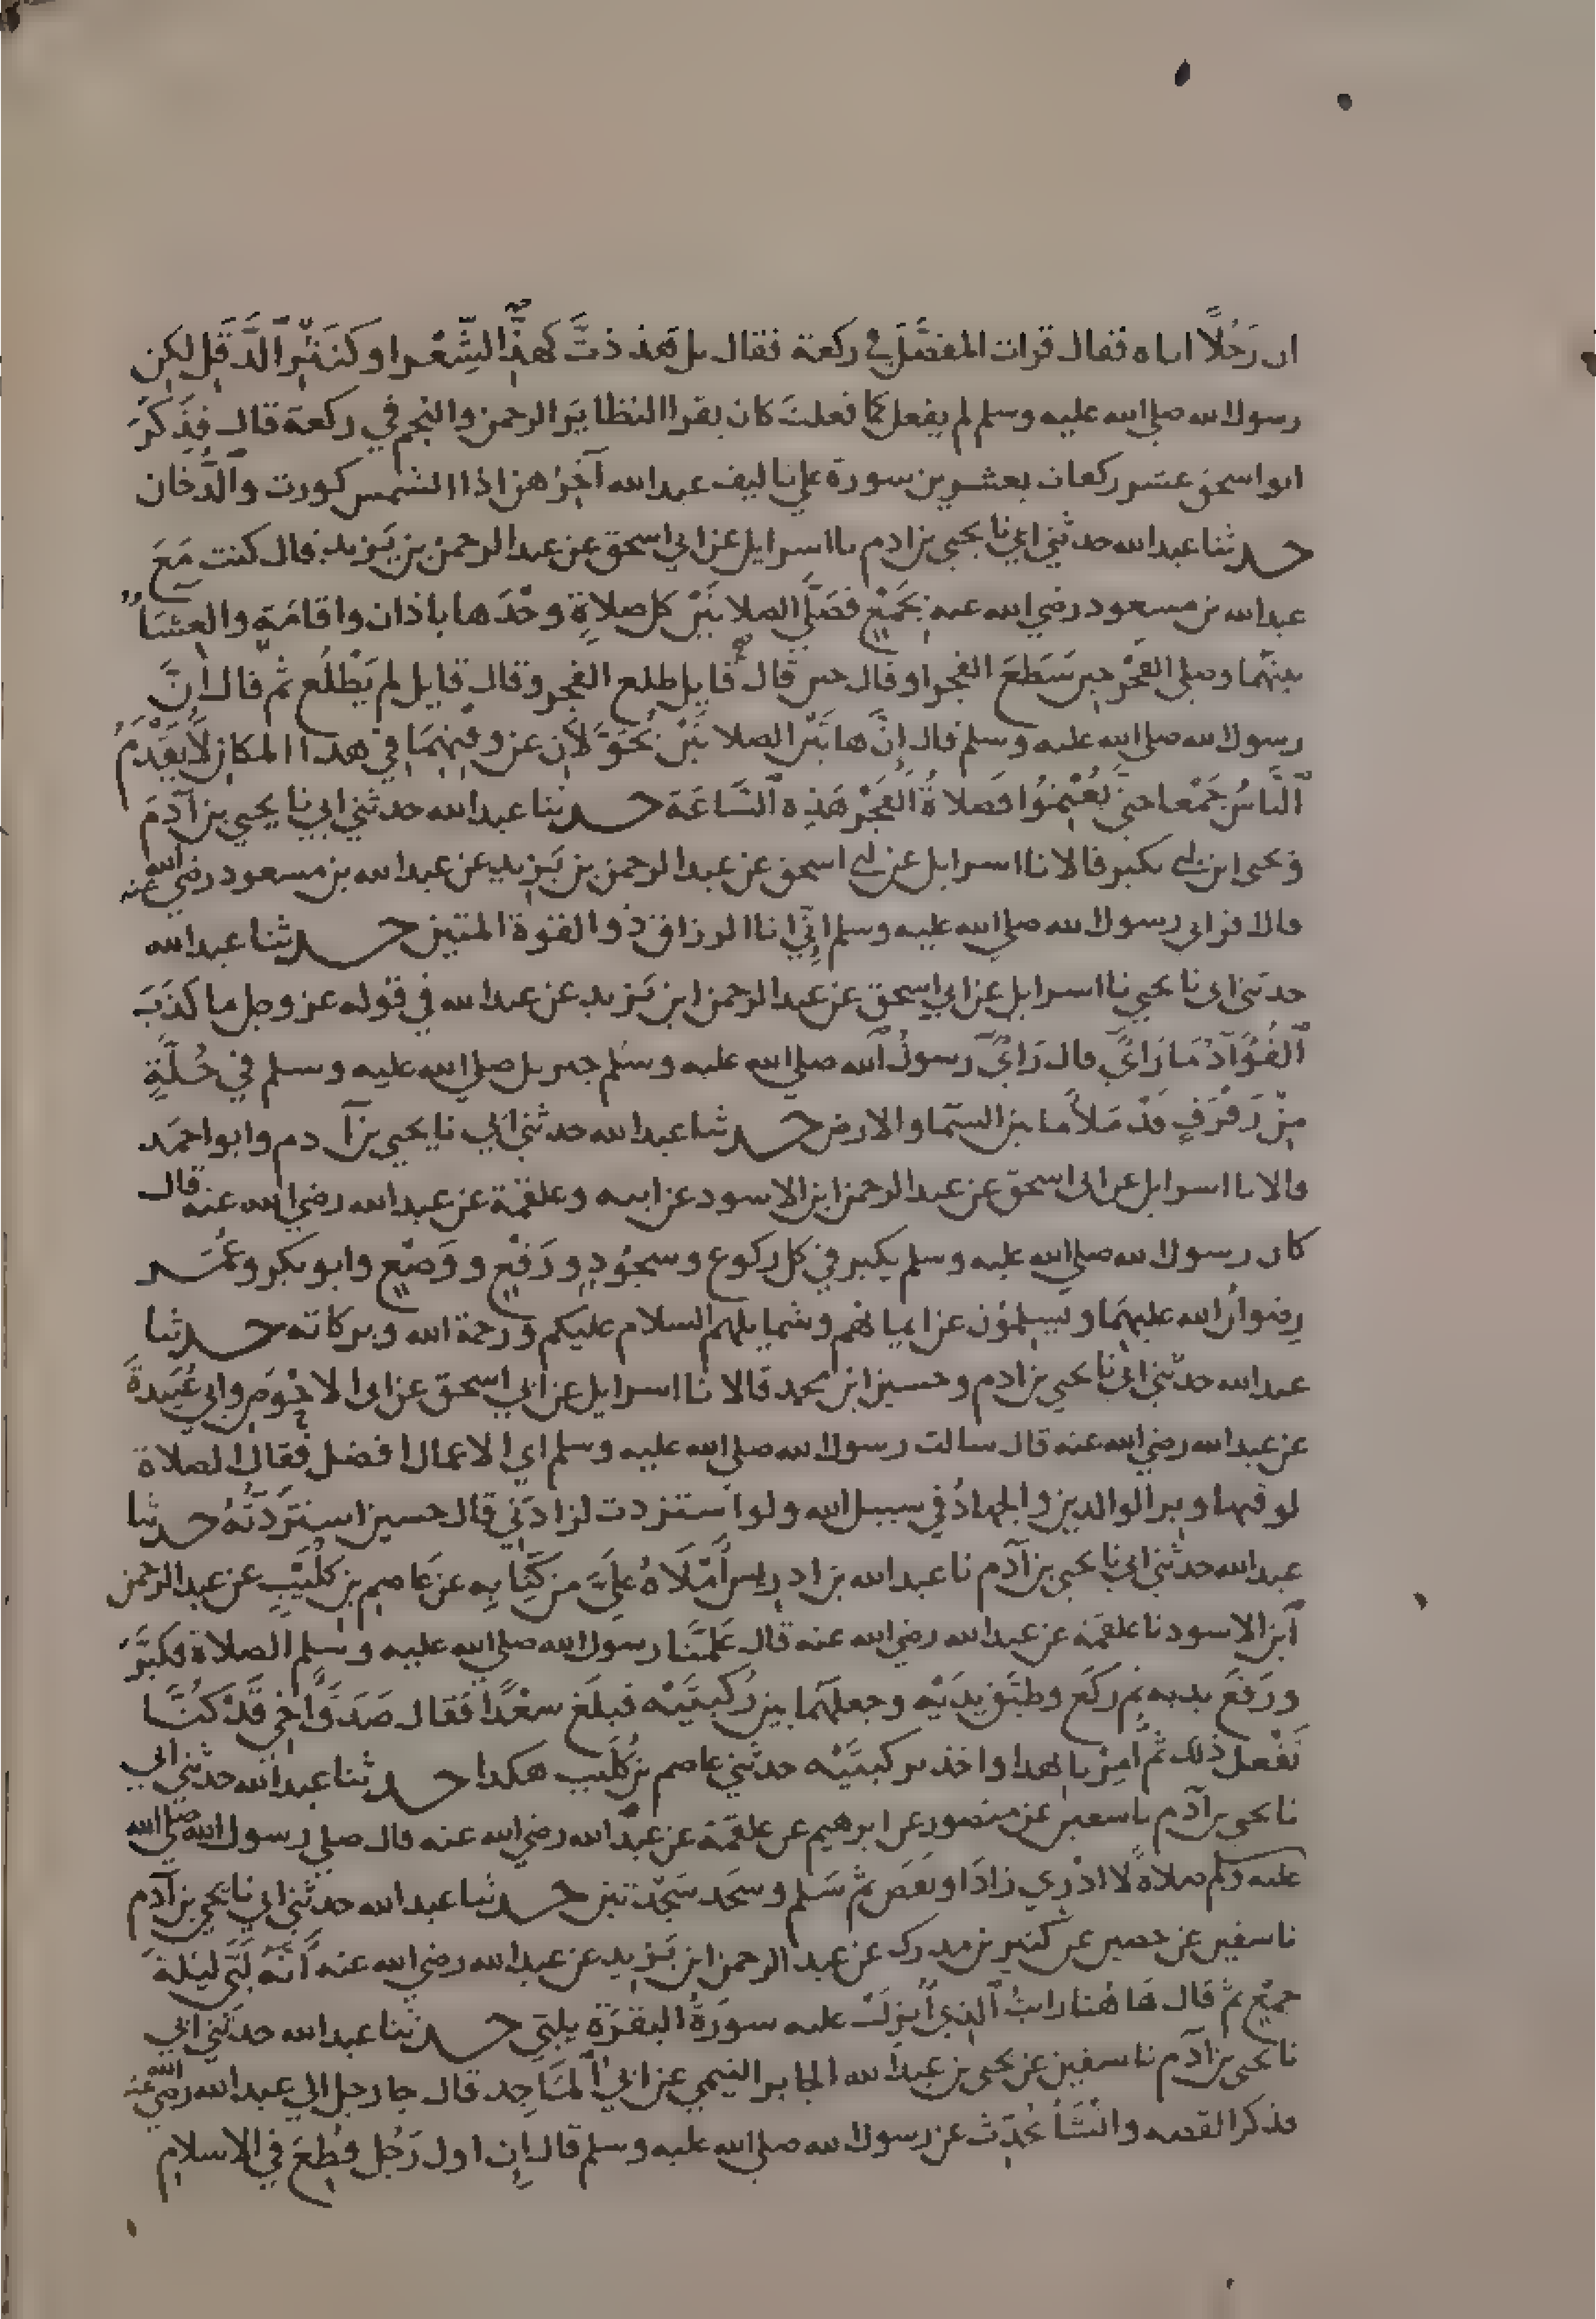 ان رَجُلاً اتاه فقال قرات المفصَّلَ في ركعة فقال بل هَذذتَّ كهَذِّ الشِّعْر او كنَثْرِ الدَّقَلِ لكن
رسول الله صلى الله عليه وسلم لم يفعل كما فعلتَ كان يقرا النظايرَ الرحمن والنجم في ركعة قال فذَكَرَ
ابو اسحق عشر ركعات بعشرين سورة على تاليف عبد الله آخرُهن اذا الشمس كورت والدُّخان
حدثنا عبد الله حدثني ابي نا يحيى بن ادم نا اسرايل عن ابي اسحق عن عبد الرحمن بن يَزيد قال كنت مَعَ
عبد الله بن مسعود رضي الله عنه بِجَمْعٍ فصَلَّى الصلاتَيْن كل صلاةٍ وحْدَها باذان واقامَةٍ والعشَاءُ
بينهما وصلى الفَجْر حين سَطَعَ الفجر او قال حين قال قايل طلع الفجر وقال قايل لم يَطْلُع ثم قال اِنَّ
رسول الله صلى الله عليه وسلم قال اِنَّ هاتَيْن الصلاتَيْن تُحَوَّلان عن وقتِهِمَا في هذا المكان لا يَقْدَمُ
النَّاسُ جَمْعا حتَّى يُعْتِموُا وَصلاةُ الفَجْر هَذِه السَّاعَة حدثنا عبد الله حدثني ابي نا يحيى بن آدمَ
ويحيى ابن ابي بكير قالا نا اسرايل عن ابي اسحق عن عبد الرحمن بن يَزِيد عن عبد الله بن مسعود رضي الله عنه
قال اقراني رسول الله صلى الله عليه وسلم اِنّي انا الرزاق ذو القوة المتين حدثنا عبد الله
حدثني ابي نا يحيى نا اسرايل عن ابي اسحق عن عبد الرحمن ابن يَزيد عن عبد الله في قوله عز وجل ما كَذَبَ
الفُؤَادُ مَا رَأىَ قال رَأىَ رسولُ الله صلى الله عليه وسلم جبريل صلى الله عليه وسلم في حُلَّةٍ
مِنْ رَفْرَفٍ قَدْ مَلأ ما بين السَّما والارض حدثنا عبد الله حدثني ابي نا يحيى بن آدم وابو احمَد
قالا نا اسرايل عن ابى اسحق عن عبد الرحمن ابن الاسود عن ابيه وعلقمة عن عبد الله رضي الله عنه قال
كان رسول الله صلى الله عليه وسلم يكبر في كل ركوع وسجُودٍ ورَفْعٍ ووَضْعٍ وابو بكر وعُمَر
رِضوانُ الله عليهمَا ويسلمُون عن ايمانهم وشمايلهم السلام عليكم ورحمة الله وبركاته حدثنا
عبد الله حدثني ابي نا يحيى بن ادم وحسين ابن محمد قالا نا اسرايل عن ابي اسحق عن ابى الاحْوَصِ وابي عُبَيدةَ
عن عبد الله رضي الله عنه قال سالت رسول الله صلى الله عليه وسلم اي الاعمال افضل فقال الصلاة
لوقتها وبر الوالدين والجهادُ في سبيل الله ولو استزدت لزادَني قال حسين استَزَدتُّهُ حدثنا
عبد الله حدثني ابي نا يحيى بن آدم نا عبد الله بن ادرِيس أَمْلَاهُ عَلَيَّ من كِتَابِه عن عَاصِم بن كُلَيْبٍ عن عبد الرحمن
ابن الاسود نا علقمَة عن عبد الله رضي الله عنه قال عَلَّمَنَا رسول الله صلى الله عليه وسلم الصلاة فكبَّرَ
ورَفَعَ يديه ثم رَكَعَ وطبَّق يدَيْه وجعلهما بين رُكبتَيْه فبلَغ سعْدًا فَقال صَدَقَ اخِي قَدْ كُنَّا
نَفْعل ذلك ثُم اُمِرْنا بهذا واخذ بركبتَيْه حدثني عاصم بن كُلَيب هكذا حدثنا عبد الله حدثني ابي
نا يحيى بن آدم نا سفين عن منصور عن ابرهيم عن علقمَة عن عبد الله رضي الله عنه قال صلى رسول الله صلى الله
عليه وسلم صلاةً لا ادْرِي زادَا و نقَصَ ثم سَلم وسجَد سَجْدتين حدثنا عبد الله حدثني ابي نا يحيى بن آدم
نا سفين عن حصين عن كثير بن مدرك عن عبد الرحمن ابن يَزيد عن عبد الله رضي الله عنه أنَّهُ لَبَّى لَيْلَةَ
جمْعٍ ثم قال هَاهُنا رايتُ الذِي اُنزِلَتْ عليه سورَةُ البقرَة يلبّي حدثنا عبد الله حدثني ابي
نا يحيى بن آدم نا سفين عن يحيى بن عبد الله الجابر التيمي عن ابي المَاجِد قال جا رجل الى عبد الله رضي الله عنه
فذكر القصه وانْشَأ يُحدِّث عن رسول الله صلى الله عليه وسلم قال اِن اول رَجُل قُطِعَ في الاسلام